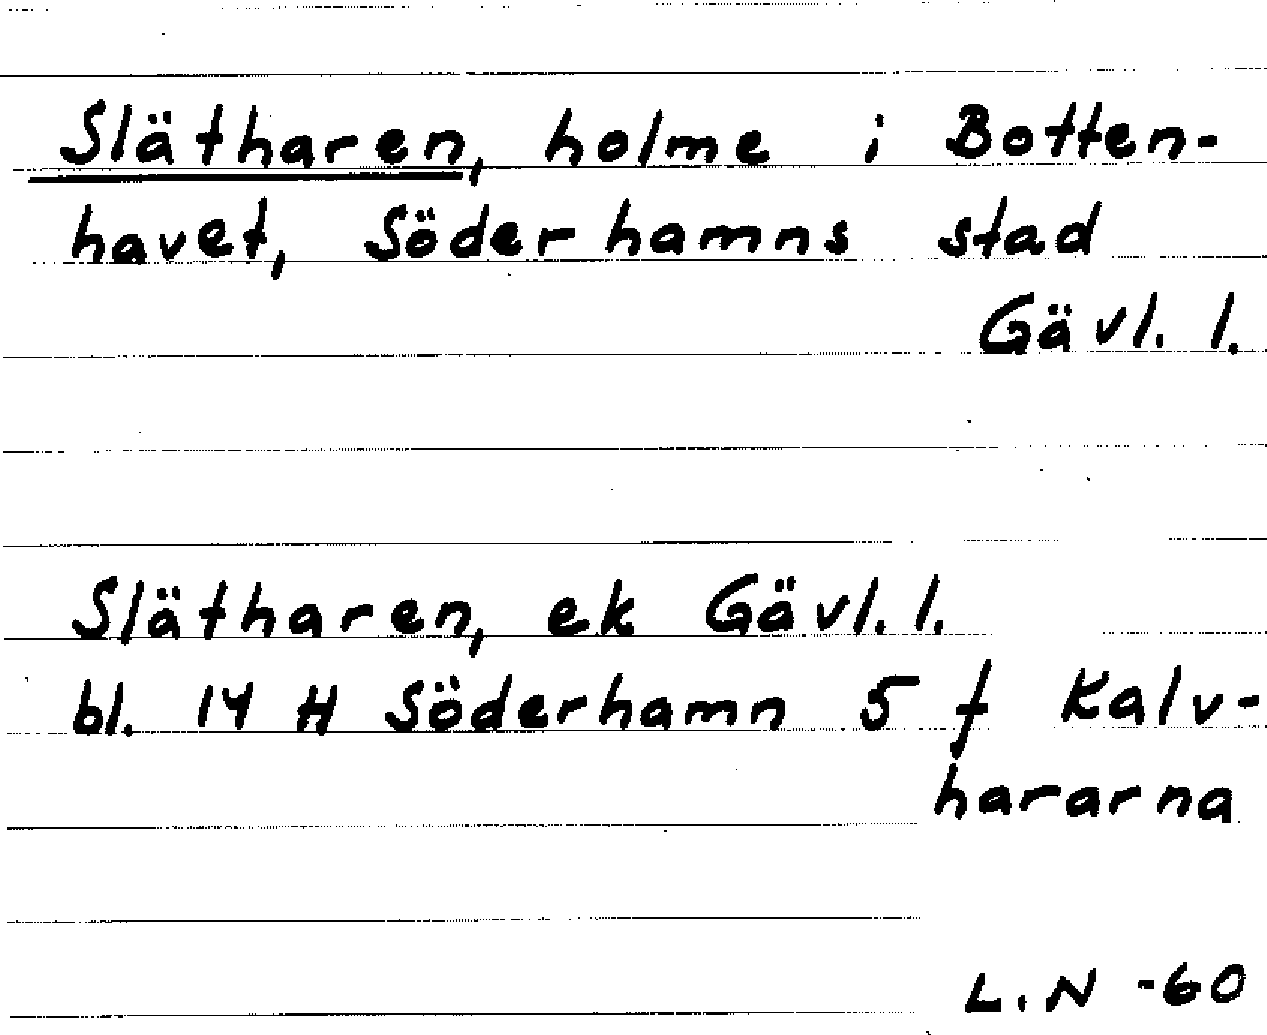 Slätharen, holme i Botten-
havet, Söderhamns stad
Gävl. l.
Slätharen, ek Gävl. l.
bl. 14 H Söderhamn 5 f Kalv-
hararna
L.N -60